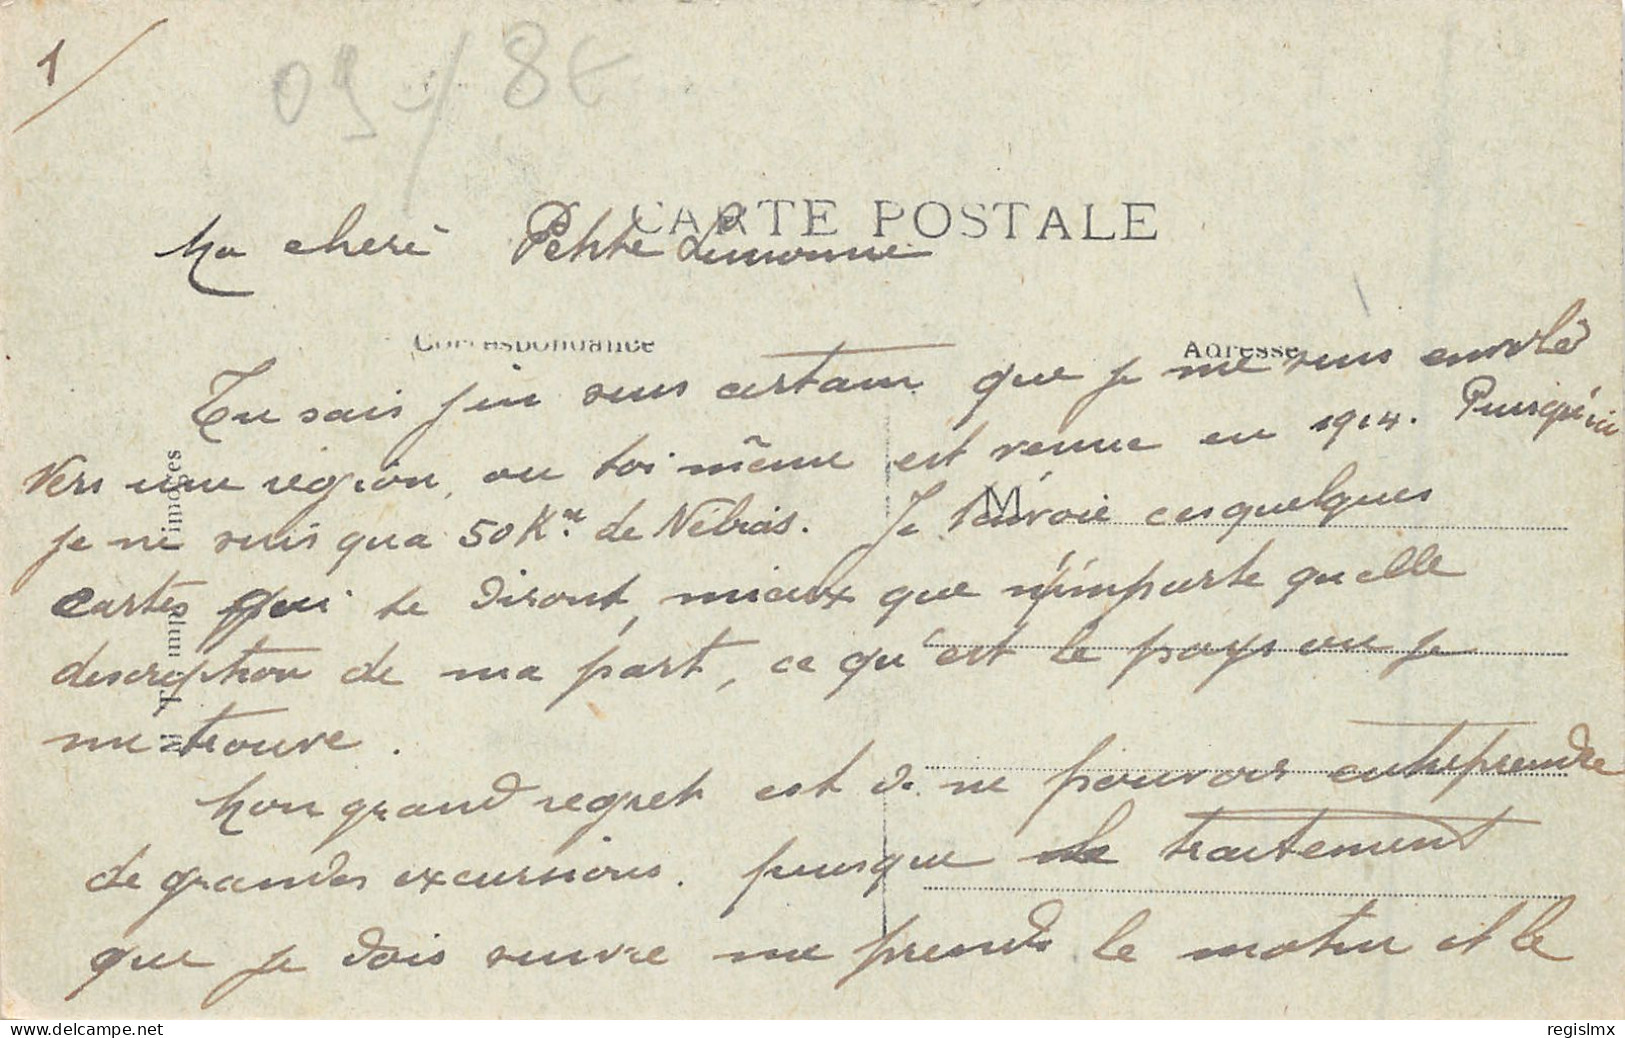 1/
09-/ 8€
CARTE POSTALE
Ma cheré Petite
Correspondance
Adresse
Tu sais j'en suis certain que je me suis envolé
Vers une région, ou toi même est venue en 1914.
je ne suis qu'a 50 Km de Je t'envoie ces quelques
M
cartes qui te diront, mieux que n'importe quelle
description de ma part, ce qu'est le pays ou je
me trouve.
Mon grand regret est de ne pouvoir entreprendre
de grandes excursions. puisque le traitement
que je dois suivre me prends le matin et le
regislmx
www.delcampe.net